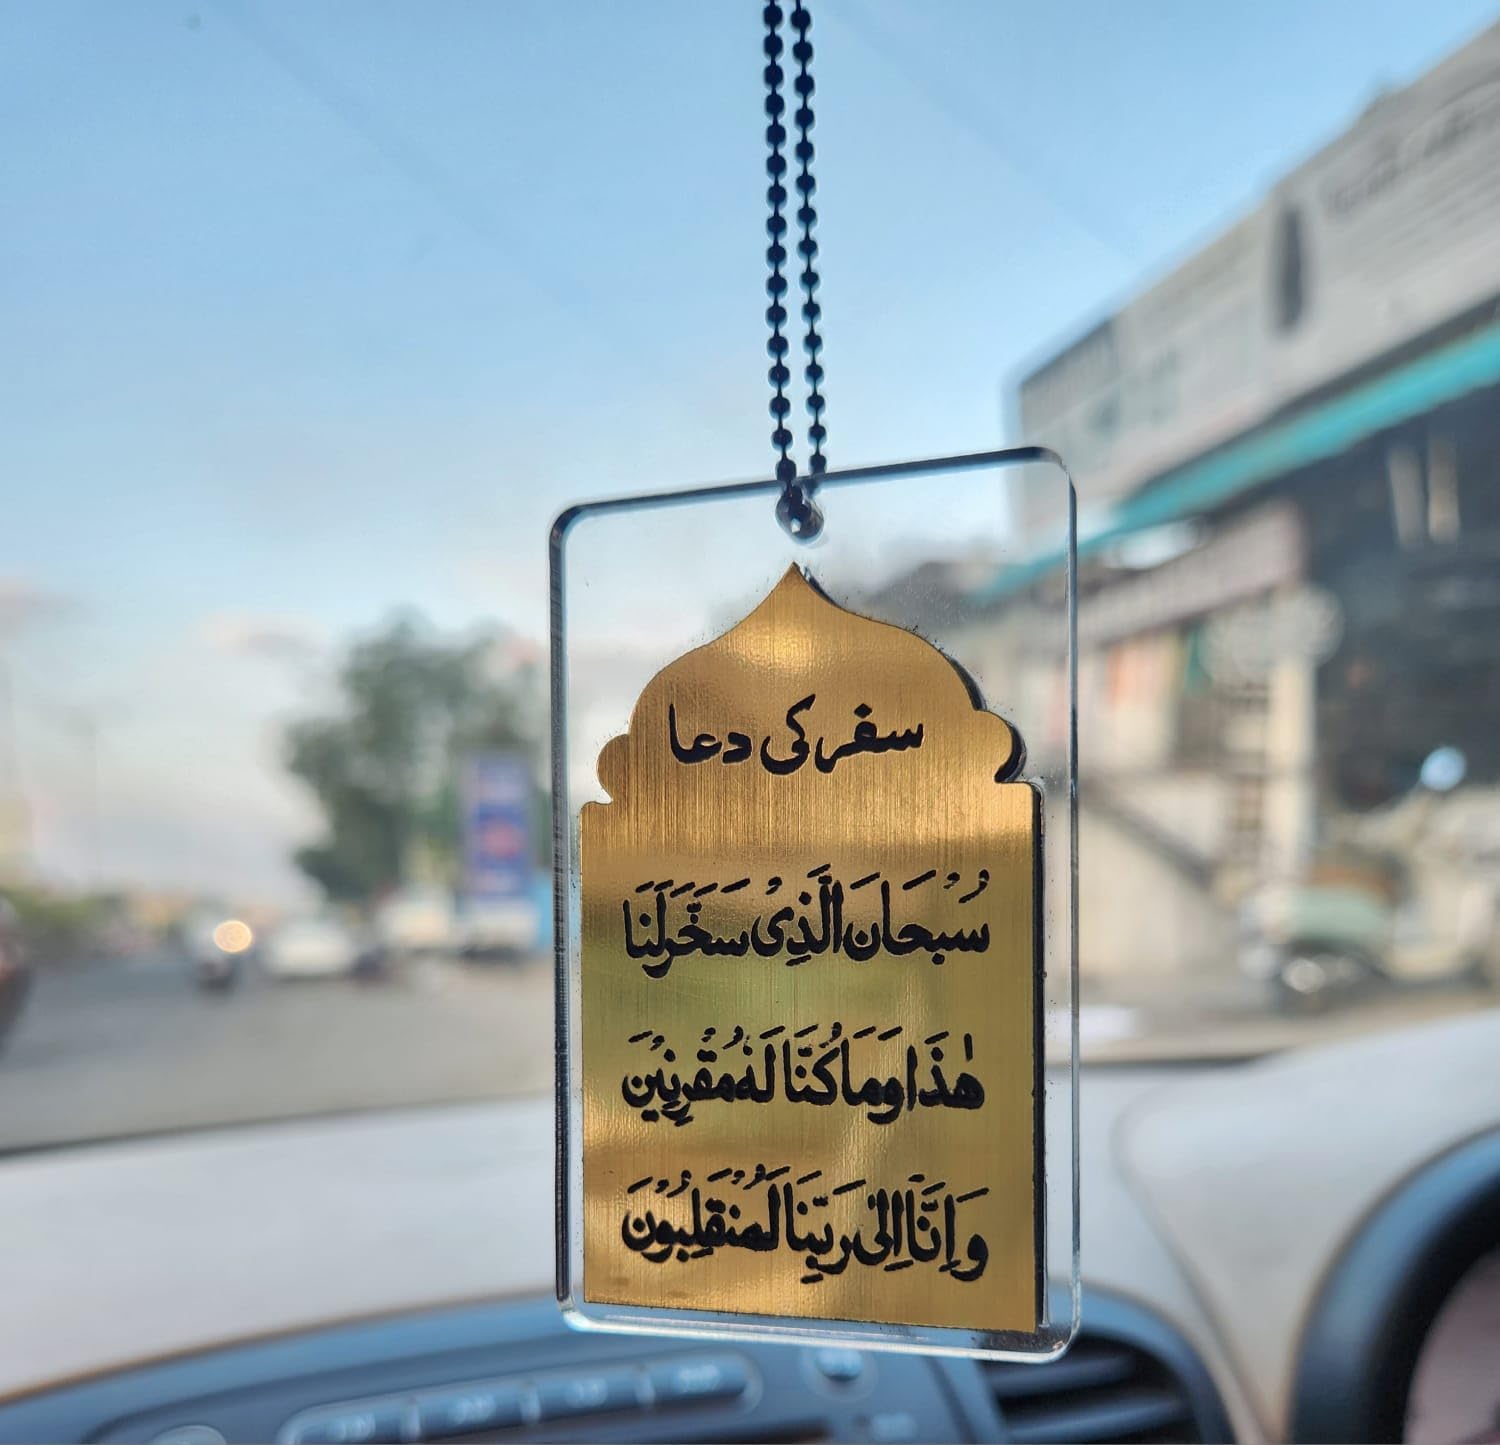 سفر کی دعا
سُبْحَانَ الَّذِیْ سَخَّرَ لَنَا
هٰذَا وَمَا كُنَّا لَهٗ مُقْرِنِيْنَ
وَاِنَّا اِلٰى رَبِّنَا لَمُنْقَلِبُوْنَ